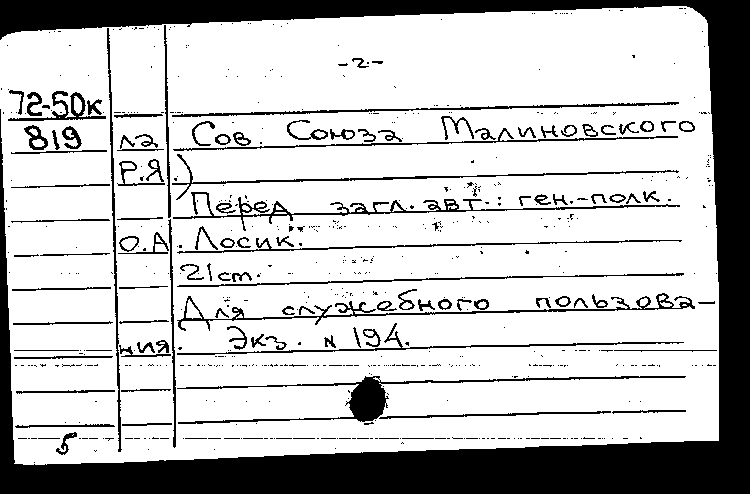 -2-
72-50к
819 ла Сов. Союза Малиновского
Р.Я.)
Перед загл. авт.: ген.-полк.
О.А. Лосик.
21 ст.
Для служебного пользова-
ния. Экз. № 194.
5